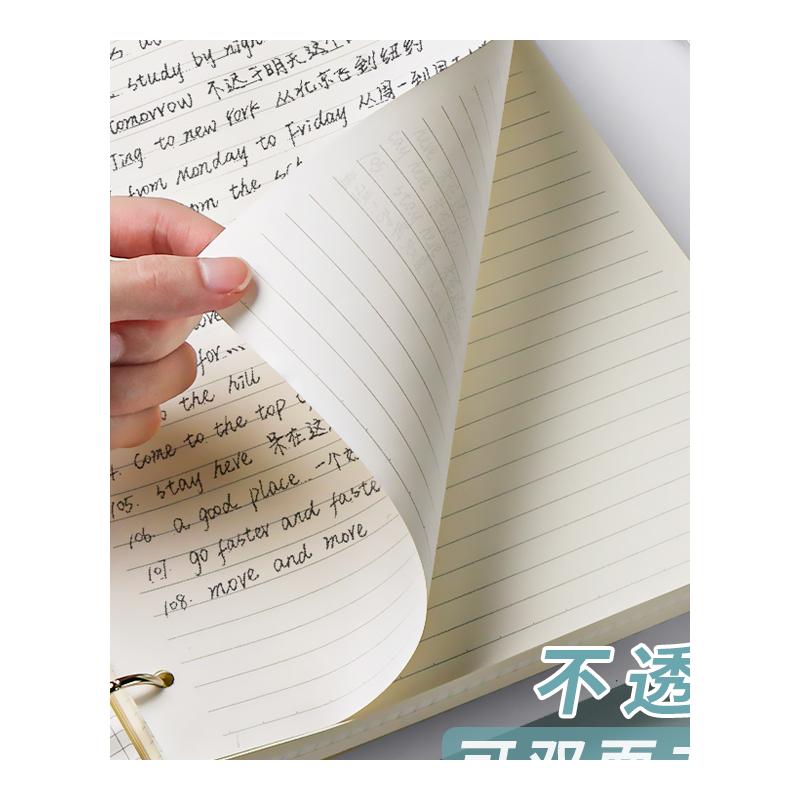 study by nigh
tomorrow 不迟于明天这个
ing to new York 从北京飞到纽约
from Monday to Friday 从周一到周
om the
for...
the hill
come to the top
105. stay here 呆在这
106. a good place 一个
107. go faster and faste
108. move and more
不透
可双面